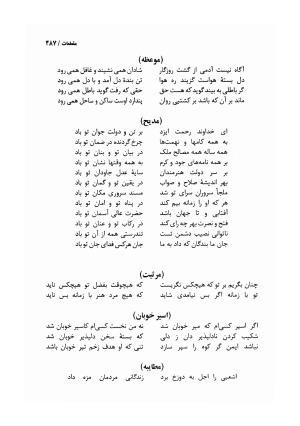 مقطعات / ۳۸۷
(موعظه)
آگاه نیست آدمی از گشت روزگار شادان همی نشیند و غافل همی رود
دل بستهٔ هواست گزیند ره هوا تن بندهٔ دل آمد و با دل همی رود
گر باطلی به بیند گوید که هست حق حقی که رفت گوید باطل همی رود
ماند بر آن که باشد بر کشتیی روان پندارد اوست ساکن و ساحل همی رود
(مدیح)
ای خداوند رحمت ایزد بر تن و دولت جوان تو باد
به همه کامها و نهمت‌ها چرخ گردنده در ضمان تو باد
همه ساله همه مصالح ملک در بیان تو و بنان تو باد
بر همه نامه‌های جود و کرم به همه وقتها نشان تو باد
بر سر دولت هنرمندان سایهٔ عدل جاودان تو باد
بهر اندیشهٔ صلاح و صواب در یقین تو و گمان تو باد
ملجأ سروران شد مسند تو مسند سروری مکان تو باد
هر که او را زمانه بیم کند در پناه تو و امان تو باد
آفتابی و تا جهان باشد حضرت عالی آسمان تو باد
فتح و نصرت بهر چه رای کند در رکاب تو و عنان تو باد
ناتوانی نصیب دشمن تست تندرستی همه از آن تو باد
جان ما بندگان که داد به ما جان هرکس فدای جان تو باد
(مرثیت)
چنان بگریم بر تو که هیچکس نگریست که هیچوقت بفضل تو هیچکس ناید
تو با زمانه اگر بس نیامدی شاید که هیچ مرد هنر با زمانه بس ناید
(اسیر خوبان)
اگر اسیر کسی‌ام که میر خوبان شد نه من نخست کسی‌ام کاسیر خوبان شد
شکیب کردن نادلپذیر دان ز دلی که بستهٔ سخن دلپذیر خوبان شد
نباشد ایمن گر کوه را سپر سازد تنی که او هدف زخم تیر خوبان باشد
(مطایبه)
اشعبی را اجل به دوزخ برد زندگانی مردمان مزه داد